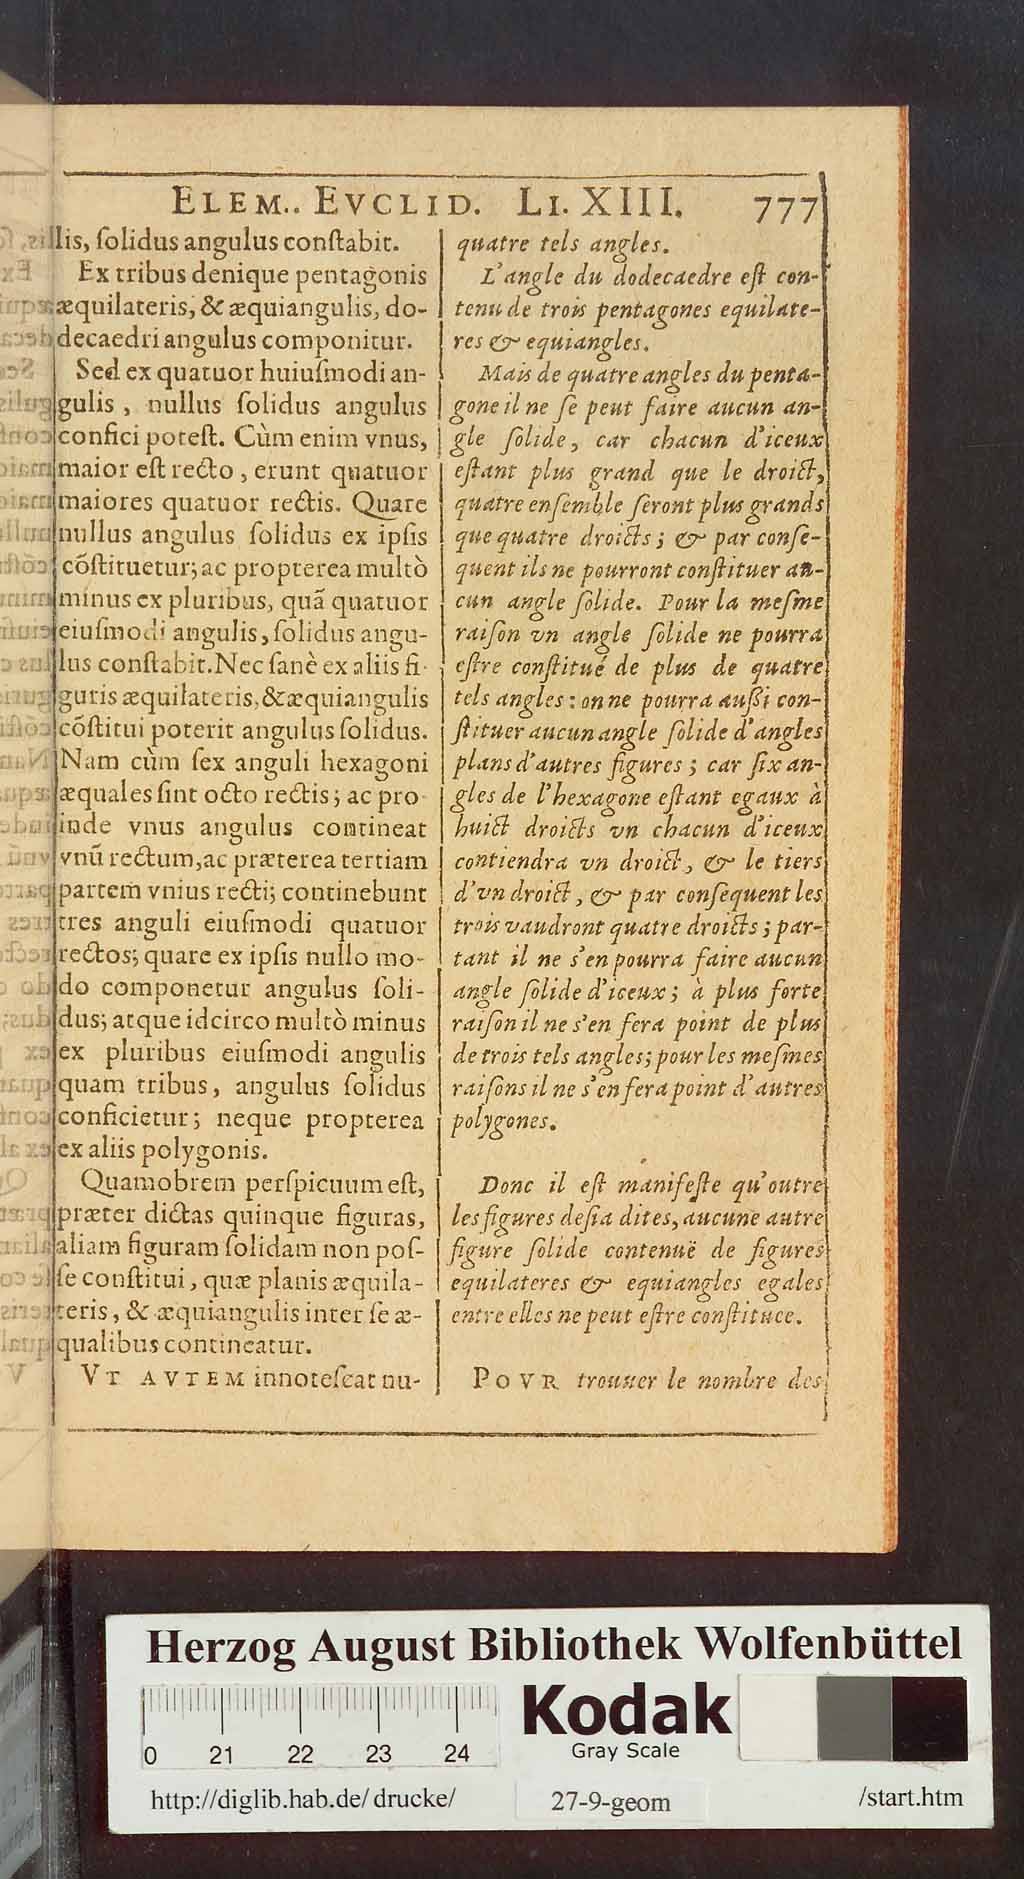 ELEM.. EVCLID. LI. XIII. 777
lis, ſolidus angulus conſtabit.
Ex tribus denique pentagonis
æquilateris, & æquiangulis, do-
decaedri angulus componitur.
Sed ex quatuor huiuſmodi an-
gulis, nullus ſolidus angulus
confici poteſt. Cùm enim vnus,
maior eſt recto, erunt quatuor
maiores quatuor rectis. Quare
nullus angulus ſolidus ex ipſis
cõſtituetur; ac propterea multò
minus ex pluribus, quã quatuor
eiuſmodi angulis, ſolidus angu-
lus conſtabit. Nec ſanè ex aliis fi-
guris æquilateris, & æquiangulis
cõſtitui poterit angulus ſolidus.
Nam cùm ſex anguli hexagoni
æquales ſint octo rectis; ac pro
inde vnus angulus contineat
vnũ rectum, ac præterea tertiam
partem vnius recti; continebunt
tres anguli eiuſmodi quatuor
rectos; quare ex ipſis nullo mo-
do componetur angulus ſoli-
dus; atque idcirco multò minus
ex pluribus eiuſmodi angulis
quam tribus, angulus ſolidus
conficietur; neque propterea
ex aliis polygonis.
Quamobrem perſpicuum eſt,
præter dictas quinque figuras,
aliam figuram ſolidam non poſ-
ſe conſtitui, quæ planis æquila-
teris, & æquiangulis inter ſe æ-
qualibus contineatur.
VT AVTEM innoteſcat nu-
quatre tels angles.
L'angle du dodecaedre eſt con-
tenu de trois pentagones equilate-
res & equiangles.
Mais de quatre angles du penta-
gone il ne ſe peut faire aucun an-
gle ſolide, car chacun d'iceux
eſtant plus grand que le droict,
quatre enſemble ſeront plus grands
que quatre droicts; & par conſe-
quent ils ne pourront conſtituer au-
cun angle ſolide. Pour la meſme
raiſon vn angle ſolide ne pourra
eſtre conſtitué de plus de quatre
tels angles: on ne pourra auſſi con-
ſtituer aucun angle ſolide d'angles
plans d'autres figures; car ſix an-
gles de l'hexagone eſtant egaux à
huict droicts vn chacun d'iceux
contiendra vn droict, & le tiers
d'vn droict, & par conſequent les
trois vaudront quatre droicts; par-
tant il ne s'en pourra faire aucun
angle ſolide d'iceux; à plus forte
raiſon il ne s'en fera point de plus
de trois tels angles; pour les meſmes
raiſons il ne s'en fera point d'autres
polygones.
Donc il eſt manifeſte qu'outre
les figures deſia dites, aucune autre
figure ſolide contenuë de figures
equilateres & equiangles egales
entre elles ne peut eſtre conſtituee.
POVR trouuer le nombre des
Herzog August Bibliothek Wolfenbüttel
0 21 22 23 24
Kodak
Gray Scale
http://diglib.hab.de/ drucke/ 27-9-geom /start.htm